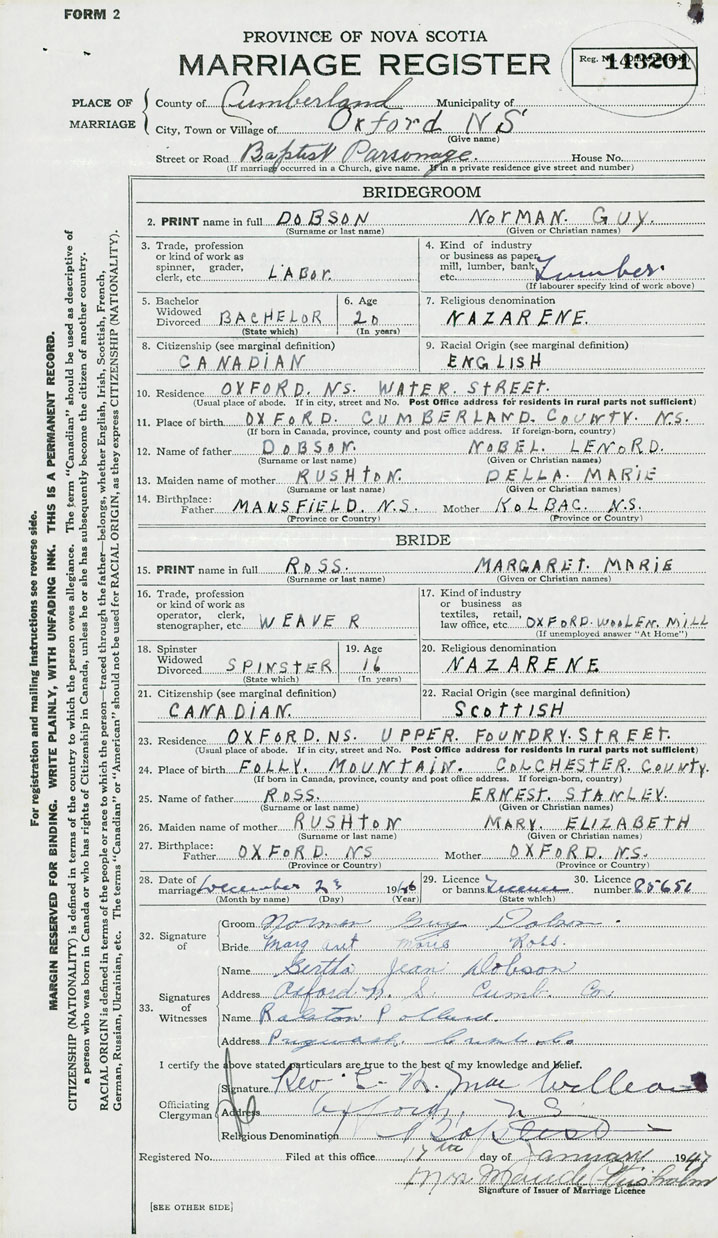 FORM 2
PROVINCE OF NOVA SCOTIA
MARRIAGE REGISTER
Reg. No. 143201
PLACE OF MARRIAGE
County of Cumberland Municipality of
City, Town or Village of Oxford NS
(Give name)
Street or Road Baptist Parsonage. House No.
(If marriage occurred in a Church, give name. If in a private residence give street and number)
BRIDEGROOM
2. PRINT name in full DOBSON NORMAN. GUY.
(Surname or last name) (Given or Christian names)
3. Trade, profession or kind of work as spinner, grader, clerk, etc. LABOR.
4. Kind of industry or business as paper mill, lumber, bank, Lumber.
(If labourer specify kind of work above)
5. Bachelor Widowed Divorced BACHELOR (State which)
6. Age 20 (In years)
7. Religious denomination NAZARENE.
8. Citizenship (see marginal definition) CANADIAN
9. Racial Origin (see marginal definition) ENGLISH
10. Residence OXFORD. NS. WATER. STREET.
(Usual place of abode. If in city, street and No. Post Office address for residents in rural parts not sufficient)
11. Place of birth OXFORD. CUMBERLAND. COUNTY. N.S.
(If born in Canada, province, county and post office address. If foreign-born, country)
12. Name of father DOBSON. NOBEL. LENORD.
(Surname or last name) (Given or Christian names)
13. Maiden name of mother RUSHTON. DELLA. MARIE
(Surname or last name) (Given or Christian names)
14. Birthplace: Father MANSFIELD. N.S. Mother KOLBAC. N.S.
(Province or Country) (Province or Country)
BRIDE
15. PRINT name in full ROSS. MARGARET. MARIE
(Surname or last name) (Given or Christian names)
16. Trade, profession or kind of work as operator, clerk, stenographer, etc. WEAVER
17. Kind of industry or business as textiles, retail, law office, etc. OXFORD. WOOLEN. MILL
(If unemployed answer "At Home")
18. Spinster Widowed Divorced SPINSTER (State which)
19. Age 16 (In years)
20. Religious denomination NAZARENE
21. Citizenship (see marginal definition) CANADIAN.
22. Racial Origin (see marginal definition) SCOTTISH
23. Residence OXFORD. NS. UPPER. FOUNDRY. STREET.
(Usual place of abode. If in city, street and No. Post Office address for residents in rural parts not sufficient)
24. Place of birth FOLLY. MOUNTAIN. COLCHESTER. COUNTY.
(If born in Canada, province, county and post office address. If foreign-born, country)
25. Name of father ROSS. ERNEST. STANLEY.
(Surname or last name) (Given or Christian names)
26. Maiden name of mother RUSHTON MARY. ELIZABETH
(Surname or last name) (Given or Christian names)
27. Birthplace: Father OXFORD. NS Mother OXFORD. N.S.
(Province or Country) (Province or Country)
28. Date of marriage December 23 1946
(Month by name) (Day) (Year)
29. Licence or banns Licence (State which)
30. Licence number 85651
32. Signature of
Groom Norman Guy Dobson.
Bride Margaret Marie Ross.
33. Signatures of Witnesses
Name Bertha Jean Dobson
Address Oxford N. S. Cumb. Co.
Name Ralston Pollard.
Address Pugwash Cumb. Co
I certify the above stated particulars are true to the best of my knowledge and belief.
Officiating Clergyman
Signature Rev.
Address Oxford, N.S.
Religious Denomination Baptist
Registered No. Filed at this office 17th day of January 1947
Mrs Maude Chisholm
Signature of Issuer of Marriage Licence
[SEE OTHER SIDE]
For registration and mailing instructions see reverse side.
MARGIN RESERVED FOR BINDING. WRITE PLAINLY, WITH UNFADING INK. THIS IS A PERMANENT RECORD.
CITIZENSHIP (NATIONALITY) is defined in terms of the country to which the person owes allegiance. The term "Canadian" should be used as descriptive of
a person who was born in Canada or who has rights of Citizenship in Canada, unless he or she has subsequently become the citizen of another country.
RACIAL ORIGIN is defined in terms of the people or race to which the person—traced through the father—belongs, whether English, Irish, Scottish, French,
German, Russian, Ukrainian, etc. The terms "Canadian" or "American" should not be used for RACIAL ORIGIN, as they express CITIZENSHIP (NATIONALITY).